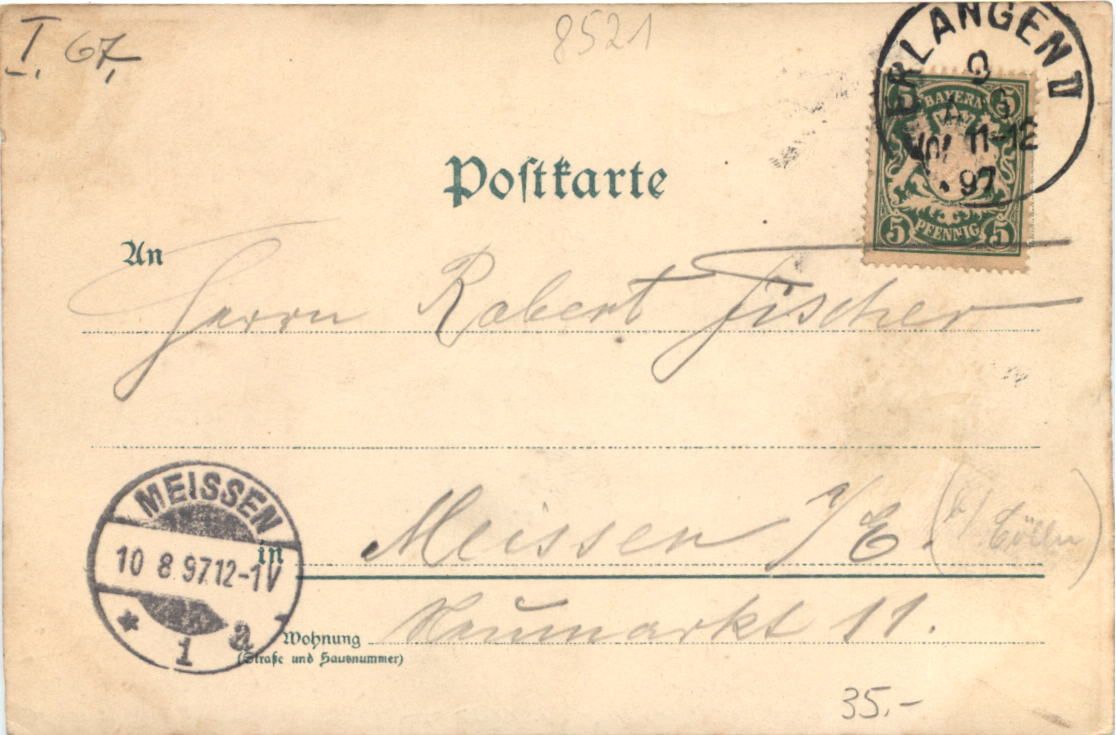 I. 67.
8521
ERLANGEN II
9
11-12
97
5 BAYERN 5
5 PFENNIG 5
Postkarte
An
Herrn Robert Fischer
MEISSEN
10 8 97 12-1V
* 1 a
in
Meissen a/E. (b/ Cölln)
Wohnung
(Straße und Hausnummer)
Neumarkt 11.
35.-